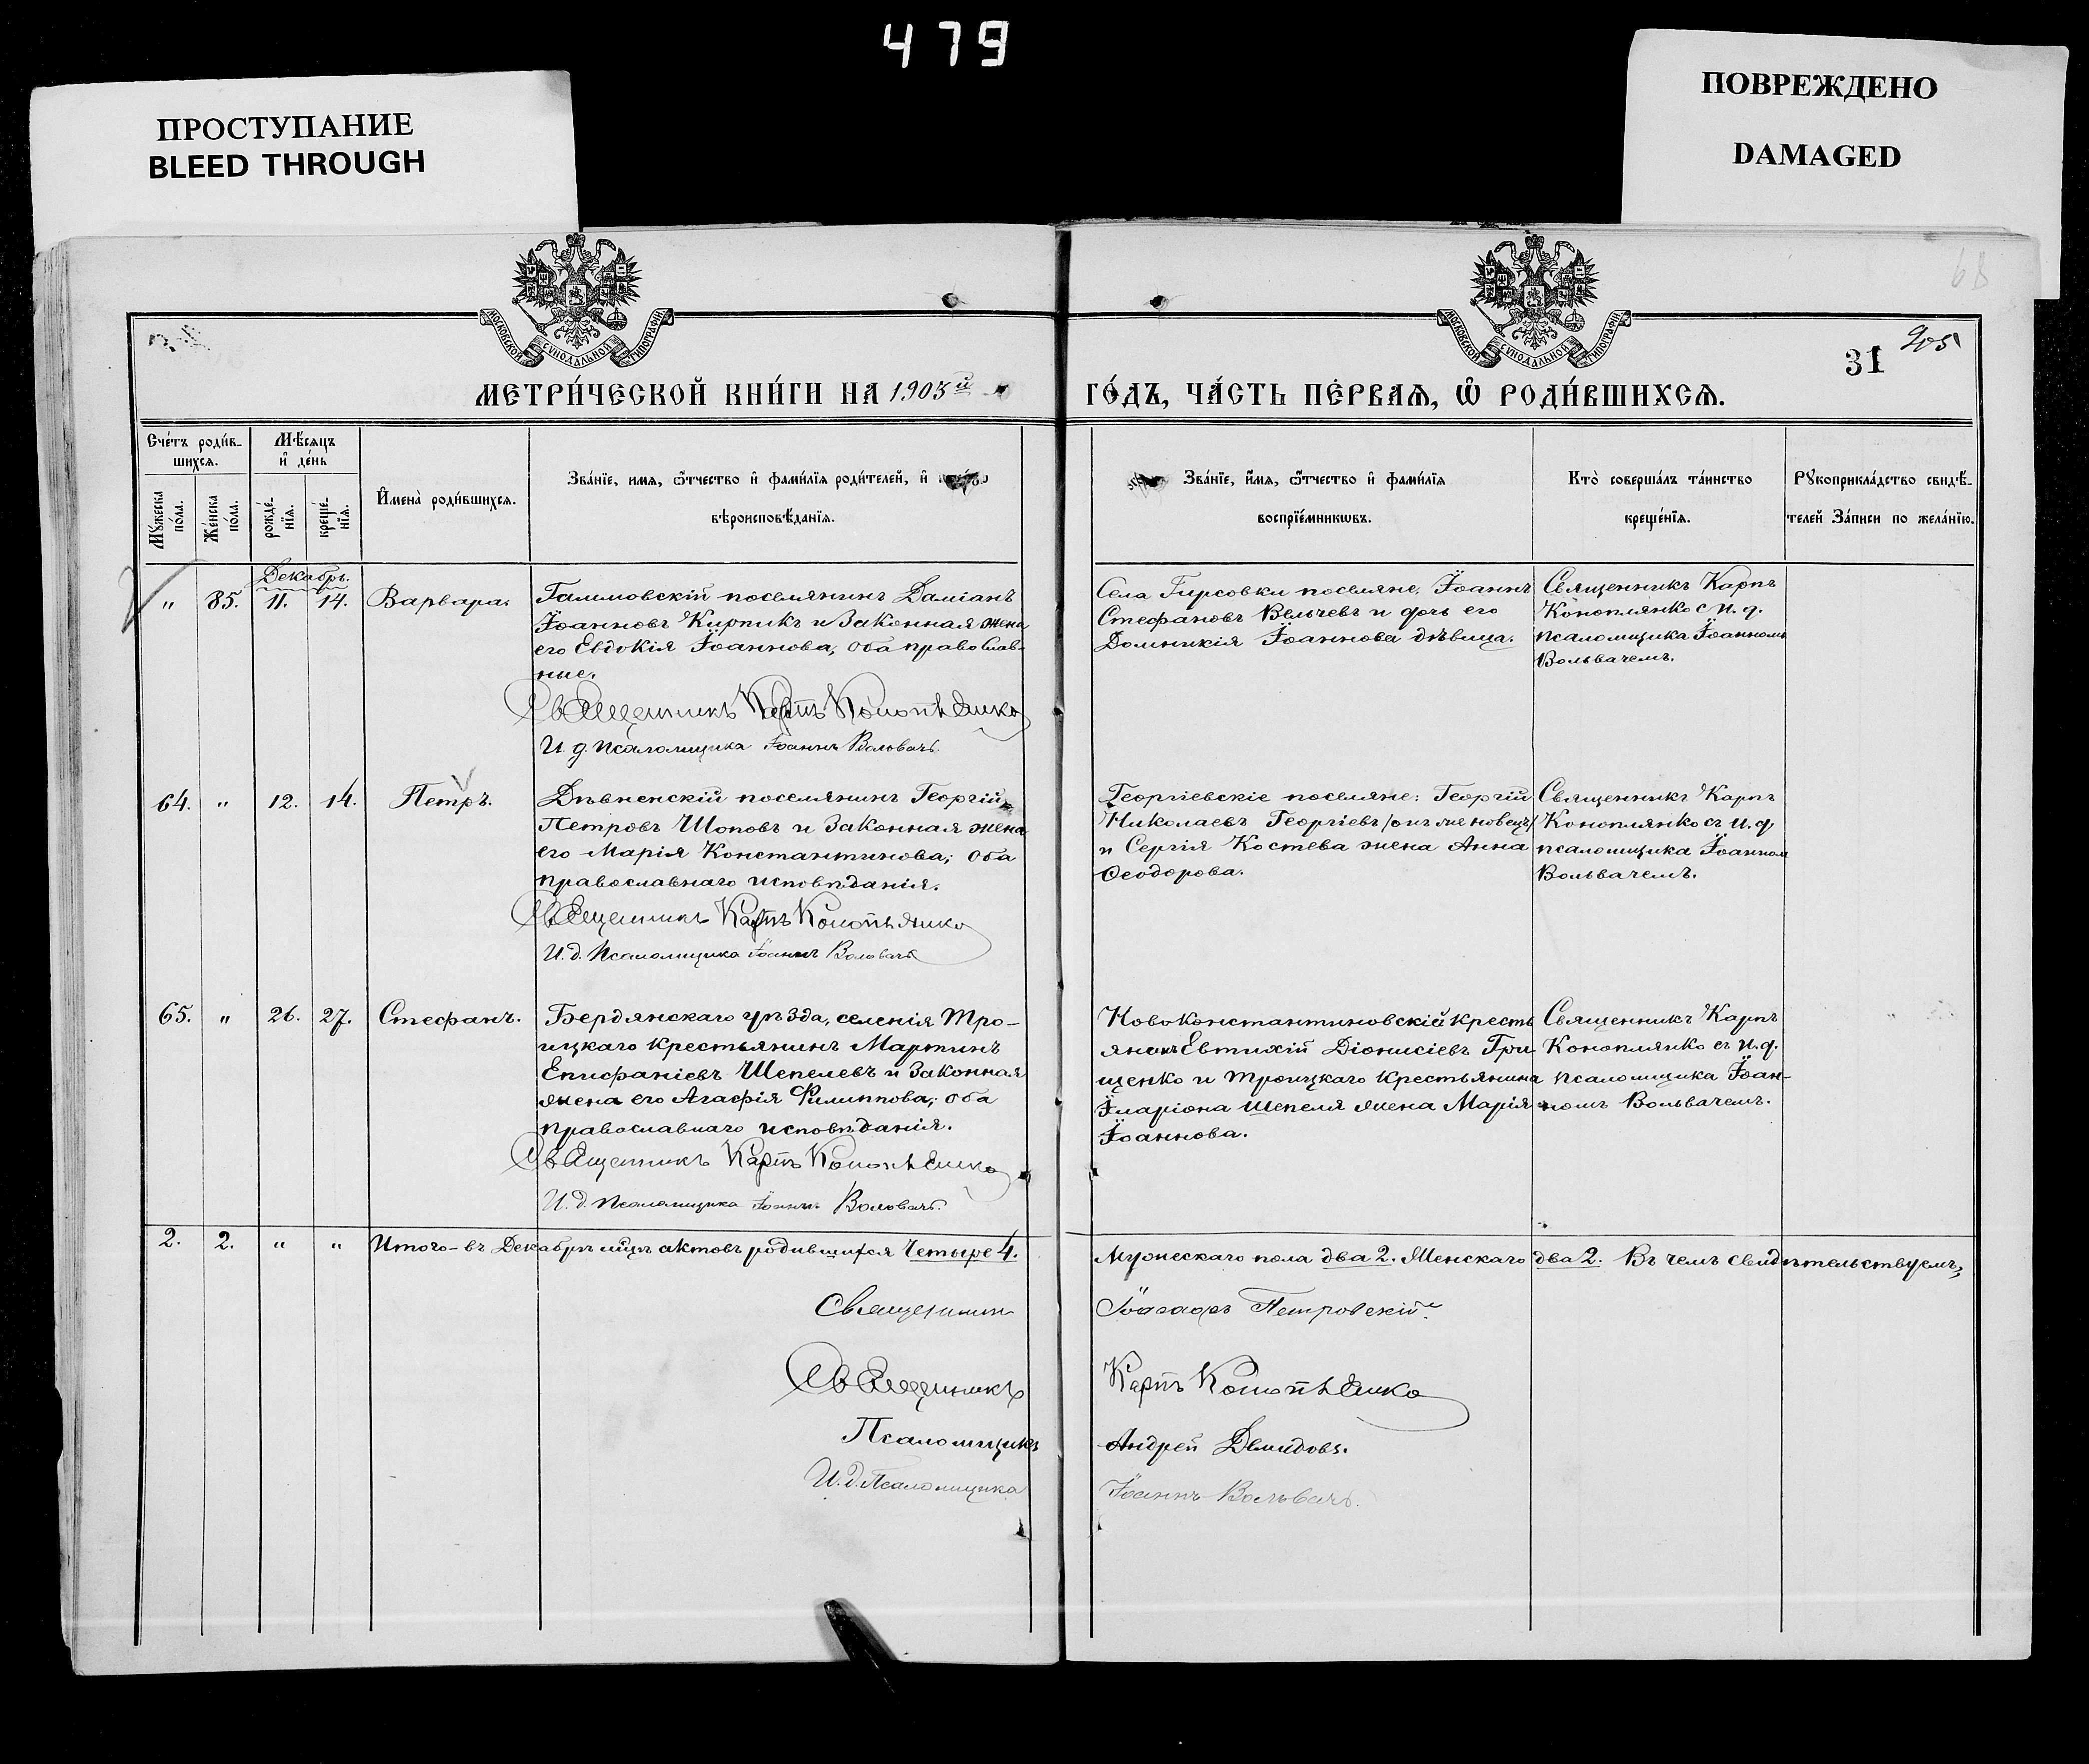 479
ПРОСТУПАНИЕ
BLEED THROUGH
ПОВРЕЖДЕНО
DAMAGED
МОСКОВСКОЙ СѴНОДАЛЬНОЙ ТИПОГРАФІИ
МОСКОВСКОЙ СѴНОДАЛЬНОЙ ТИПОГРАФІИ
31
205
МЕТРИ́ЧЕСКОЙ КНИ́ГИ НА 1903й
ГО́ДЪ, ЧА́СТЬ ПЕ́РВАѦ, Ѡ҆ РОДИ́ВШИХСѦ.
Сче́тъ роди́в-
шихсѧ.
Мѣ́сѧцъ
и҆ де́нь
Мꙋ́жеска
по́ла.
Же́нска
по́ла.
рожде́-
нїѧ.
креще́-
нїѧ.
И҆мена̀ роди́вшихсѧ.
Зва́нїе, имѧ, ѻ҆́тчество и҆ фами́лїѧ роди́телей, и҆
вѣроисповѣ́данїѧ.
Зва́нїе, и҆́мѧ, ѻ҆́тчество и҆ фами́лїѧ
воспрїе́мникωвъ.
Кто̀ соверша́лъ та́инство
креще́нїѧ.
Рꙋкоприкла́дство свидѣ́-
телей За́писи по жела́нїю.
Декабрь.
" 85. 11. 14. Варвара.
Гаммовскій поселянинъ Даміанъ
Іоанновъ Кирпикъ и законная жена
его Евдокія Іоаннова, оба православ-
ные.
Священникъ Карпъ Коноплянко
И. д. псаломщика Іоаннъ Вольвачъ.
Села Гирсовки поселяне: Іоаннъ
Стефановъ Вельчевъ и дочь его
Домникія Іоаннова дѣвица.
Священникъ Карпъ
Коноплянко с и. д.
псаломщика Іоанномъ
Вольвачемъ.
64. " 12. 14. Петръ.
Дѣвненскій поселянинъ Георгій
Петровъ Шоповъ и законная жена
его Марія Константинова; оба
православнаго исповѣданія.
Священникъ Карпъ Коноплянко
И. д. Псаломщика Іоаннъ Вольвачъ
Георгіевскіе поселяне: Георгій
Николаевъ Георгіевъ /онъ же новецъ/
и Сергія Костева жена Анна
Ѳеодорова.
Священникъ Карпъ
Коноплянко съ и. д.
псаломщика Іоанном
Вольвачемъ.
65. " 26. 27. Стефанъ.
Бердянскаго уѣзда, селенія Тро-
ицкаго крестьянинъ Мартинъ
Епифаніевъ Шепелевъ и законная
жена его Агафія Филиппова; оба
православнаго исповѣданія.
Священникъ Карпъ Коноплянко
И. д. Псаломщика Іоаннъ Вольвачъ.
Новоконстантиновскій кресть
янинъ Евтихій Діонисіевъ Гри-
щенко и Троицкаго крестьянина
Іларіона Шепеля жена Марія
Іоаннова.
Священникъ Карпъ
Коноплянко съ и. д.
псаломщика Іоан-
номъ Вольвачемъ.
2. 2. " " Итого - въ Декабрѣ мцѣ актовъ родившихся Четыре 4.
Мужескаго пола два 2. Женскаго два 2. Въ чемъ свидѣтельствуемъ:
Священникъ Іоасафъ Петровскій.
Священникъ Карпъ Коноплянко
Псаломщикъ Андрей Демидовъ.
И. д. Псаломщика Іоаннъ Вольвачъ.